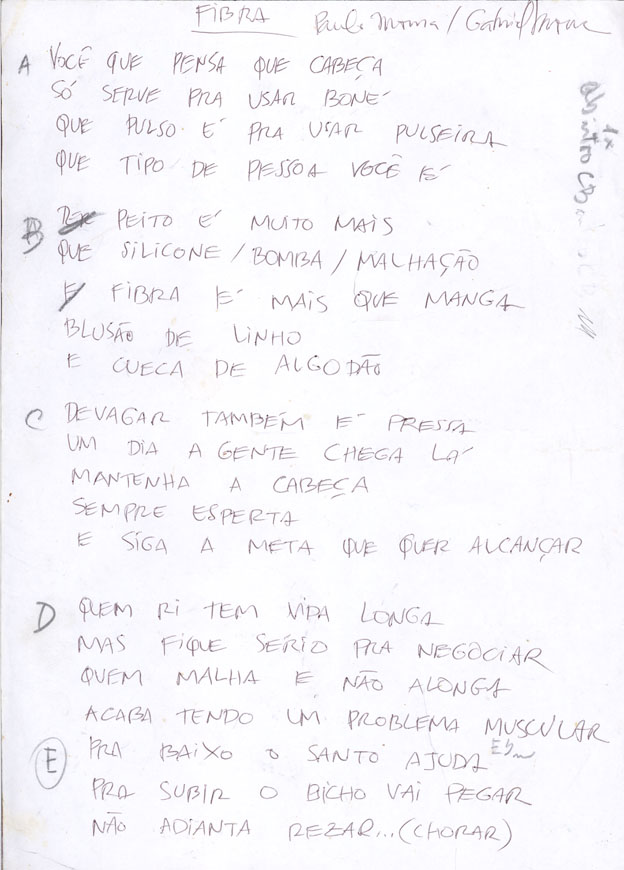 FIBRA Paulo Moura / Gabriel Moura
A VOCÊ QUE PENSA QUE CABEÇA
SÓ SERVE PRA USAR BONÉ
QUE PULSO É PRA USAR PULSEIRA
QUE TIPO DE PESSOA VOCÊ É
B PEITO É MUITO MAIS
QUE SILICONE / BOMBA / MALHAÇÃO
E FIBRA É MAIS QUE MANGA
BLUSÃO DE LINHO
E CUECA DE ALGODÃO
C DEVAGAR TAMBÉM É PRESSA
UM DIA A GENTE CHEGA LÁ
MANTENHA A CABEÇA
SEMPRE ESPERTA
E SIGA A META QUE QUER ALCANÇAR
D QUEM RI TEM VIDA LONGA
MAS FIQUE SÉRIO PRA NEGOCIAR
QUEM MALHA E NÃO ALONGA
ACABA TENDO UM PROBLEMA MUSCULAR
E PRA BAIXO O SANTO AJUDA
PRA SUBIR O BICHO VAI PEGAR
NÃO ADIANTA REZAR...(CHORAR)
1x
intro